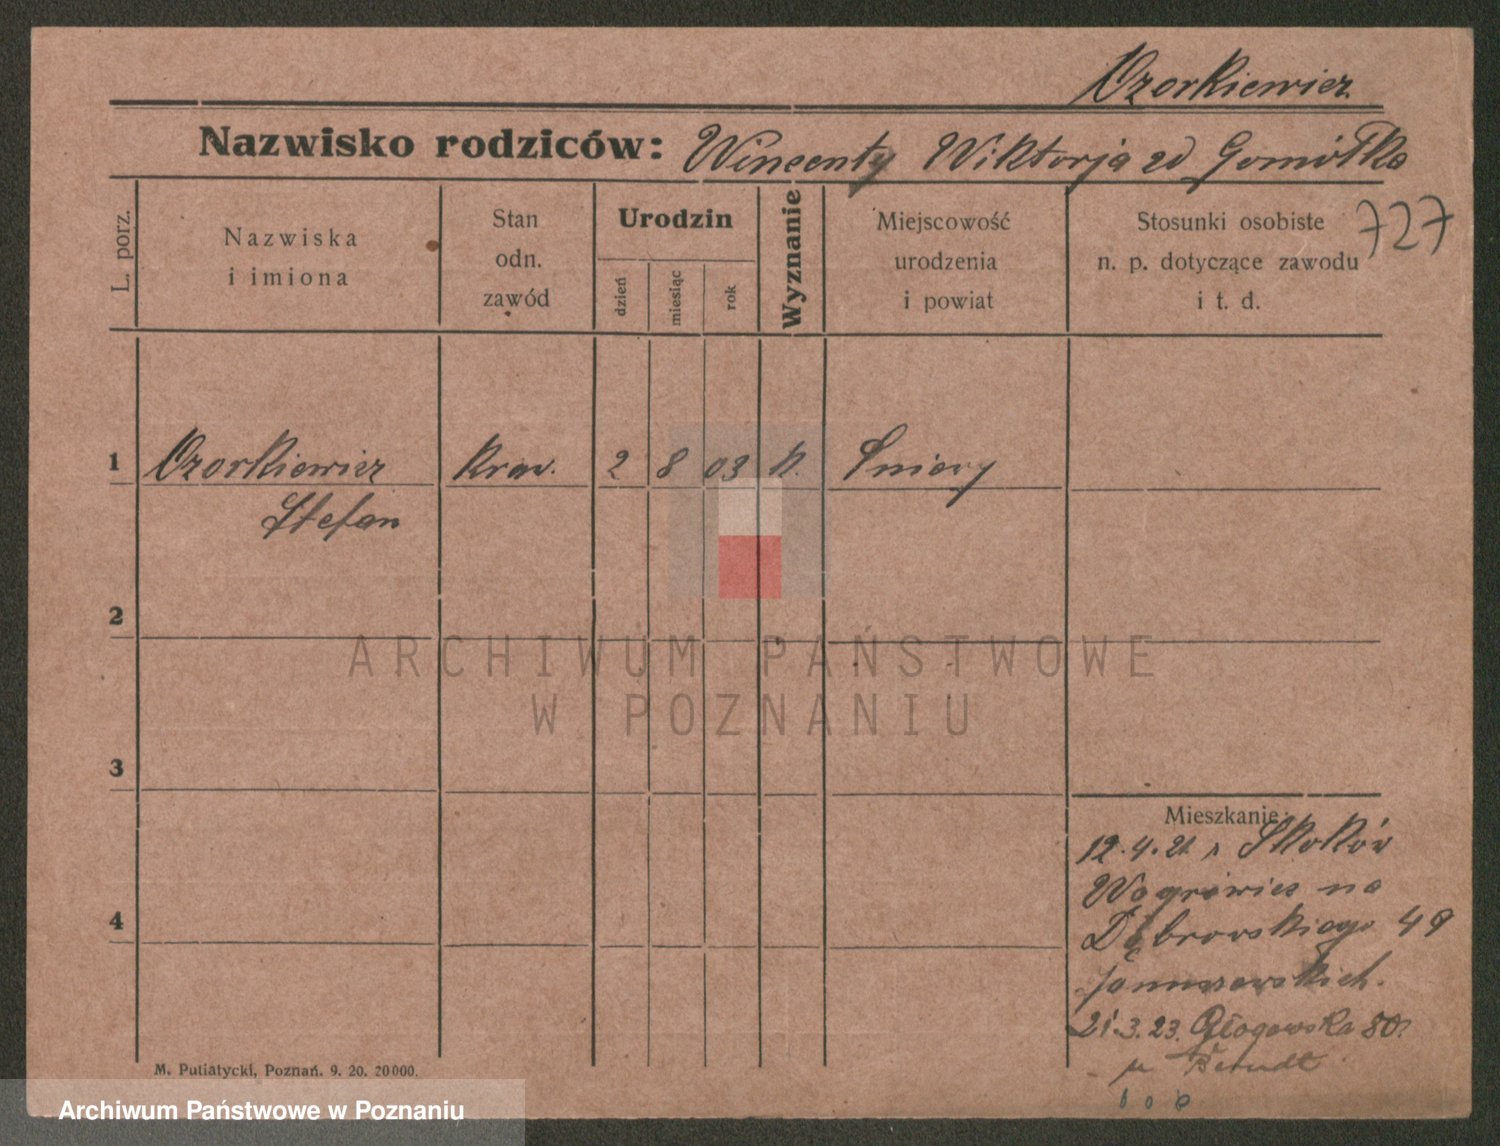 Ozorkiewicz
Nazwisko rodziców: Wincenty Wiktorja zd Gomółka
L. porz.
Nazwiska
i imiona
Stan
odn.
zawód
Urodzin
dzień
miesiąc
rok
Wyznanie
Miejscowość
urodzenia
i powiat
Stosunki osobiste
n. p. dotyczące zawodu
i t. d.
727
1 Ozorkiewicz kraw. 2 8 03 k.
Stefan
2
3
4
Mieszkanie:
12.4.21 z Skoków
Wągrówiec na
Dąbrowskiego 49
Januszewskich.
21.3.23. Głogowska 80
u Berndt
M. Putiatycki, Poznań. 9. 20. 20000.
ARCHIWUM PAŃSTWOWE
W POZNANIU
Archiwum Państwowe w Poznaniu